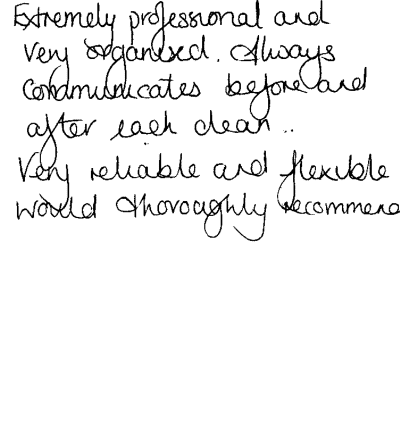 Extremely professional and
very organised. Always
communicates before and
after each clean..
Very reliable and flexible
would thoroughly recommend